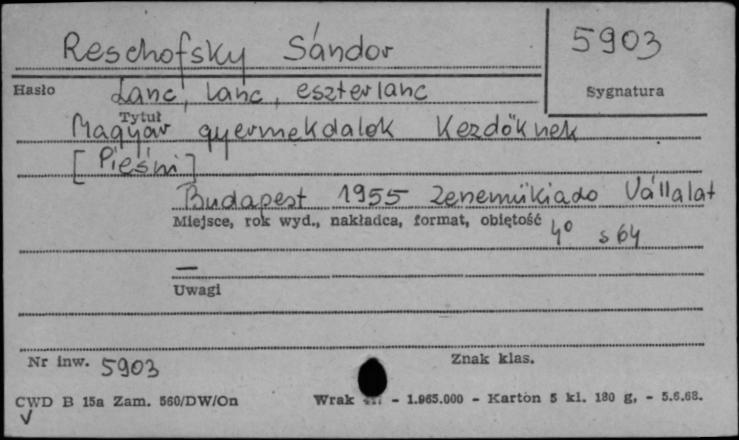 Reschofsky Sándor
5903
Hasło
Sygnatura
Lanc, lanc, eszterlanc
Tytuł
Magyar gyermekdalok Kezdőknek
[Pieśni]
Budapest 1955 Zeneműkiado Vállalat
Miejsce, rok wyd., nakładca, format, obiętość
4° s 64
—
Uwagi
Nr inw. 5903
Znak klas.
CWD B 15a Zam. 560/DW/On
Wrak - 1.965.000 - Karton 5 kl. 180 g, - 5.6.68.